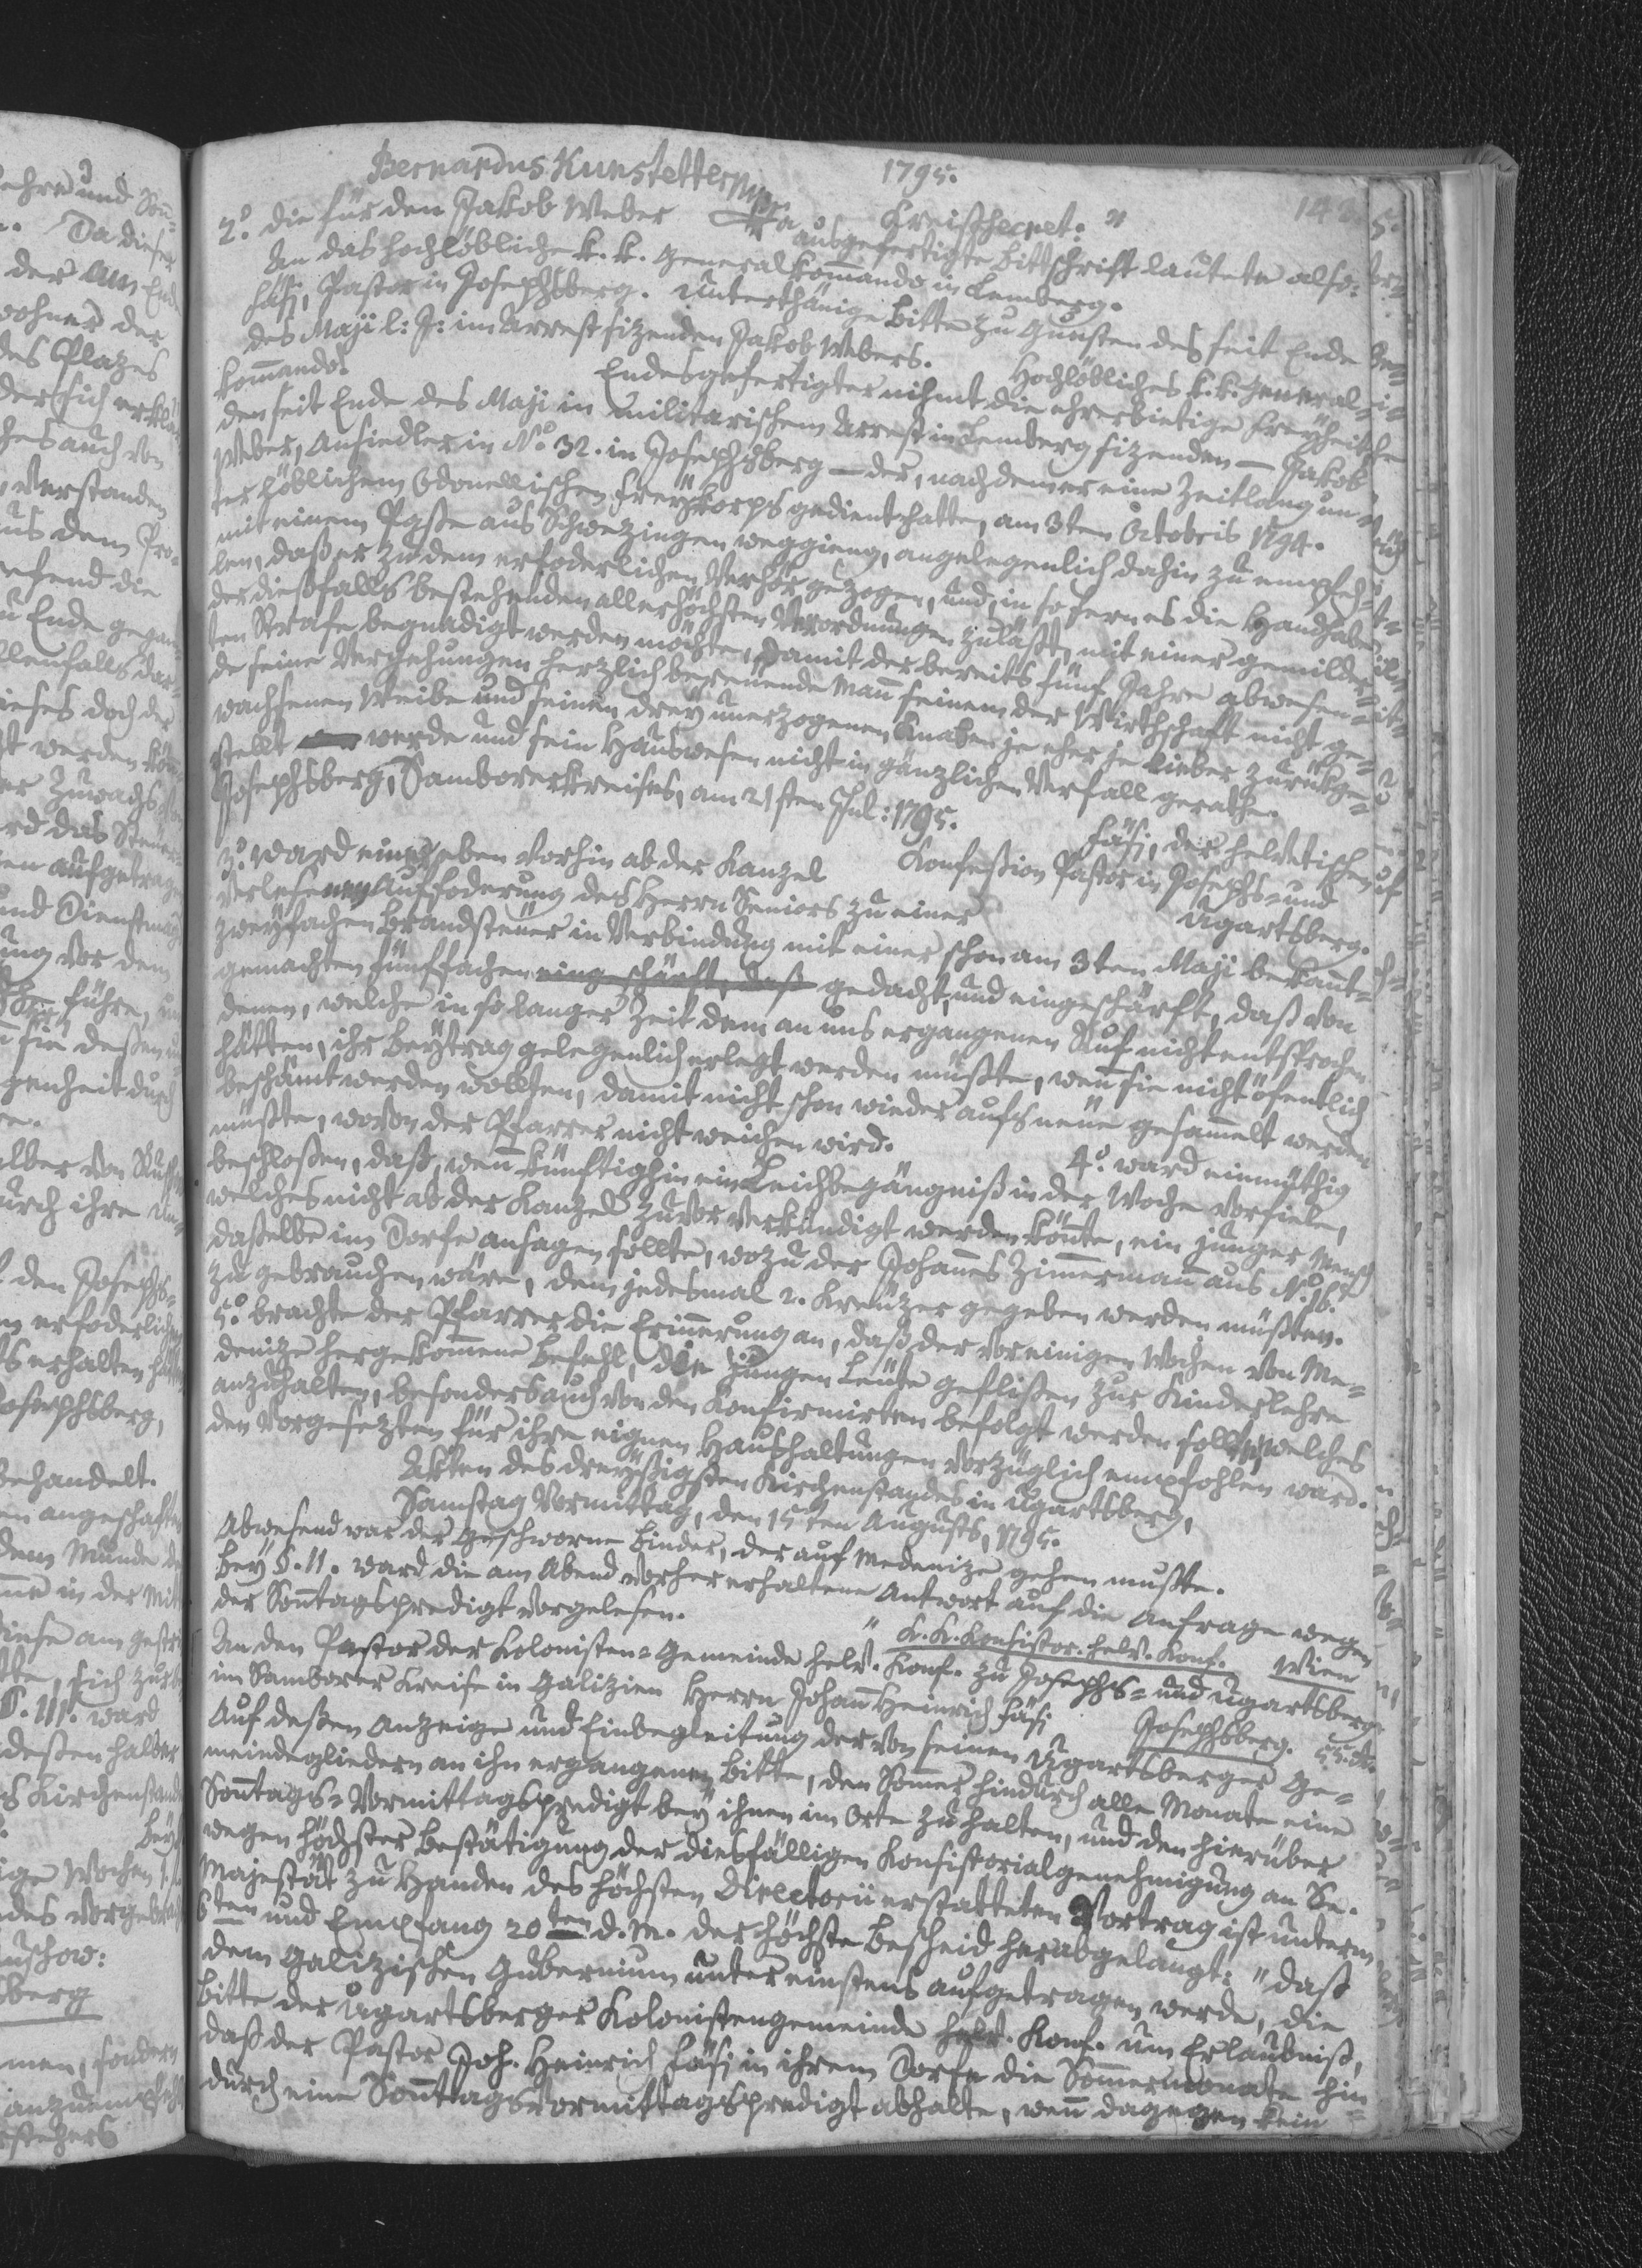 1795.
142.
Bernardus Kunstetter mpria Kreißsecret: "
2.° die für den Jakob Weber ausgefertigte Bittschrift lautete also:
An das hochlöbliche k. k. Generalkom̄ando in Lemberg.
Fäsi, Pastor in Josephsberg. Unterthänige Bitte zu Gunsten des seit Ende
des Maji l: J: im Arrest sizenden Jakob Webers. Hochlöbliches k. k. General-
kom̄ando! Endesgefertigter nihmt die ehrerbietige Freyheit
den seit Ende des Maji in militarischem Arrest in Lemberg sizenden — Jakob
Weber, Ansiedler in N.° 32. in Josephsberg — der, nachdem er eine Zeitlang un-
ter löblichem Odonellischen Freykorps gedient hatte, am 3ten Octobris 1794.
mit einem Passe aus Schwezingen weggieng, angelegenlich dahin zu empfeh-
len, daß er zu dem erfoderlichen Verhör gezogen, und, in sofern es die Handhabe
der dießfalls bestehenden allerhöchsten Verordnungen zuläßt, mit einer gemilder-
ten Strafe begnadigt werden möchte, damit der bereits fünf Jahre abwesen-
de seine Vergehungen herzlich bereuende Man̄ seinem der Wirthschaft nicht ge-
wachsenen Weibe und seinen drey unerzogenen Knaben je eher je lieber zurükge-
stellt werde und sein Hauswesen nicht in gänzlichen Verfall gerathe.
Josephsberg, Samborerkreises, am 21sten Jul: 1795.
Fäsi, der helvetischen
Konfeßion Pastor in Josephs- und
Ugartsberg.
3.° ward einer eben vorhin ab der Kanzel
verlesenen Auffoderung des Herrn Seniors zu einer
zweyfachen Brandsteuer in Verbindung mit einer schon am 3ten Maji bekan̄t-
gemachten fünffachen eingeschärft, daß gedacht, und eingeschärft, daß von
denen, welche in so langer Zeit dem an uns ergangenen Ruf nicht entsprochen
hätten, ihr Beytrag gelegenlich erlegt werden müßte, wen̄ sie nicht öfentlich
beschämt werden wollten, damit nicht schon wieder aufs neue gesam̄elt werden
müßte, wovon der Pfarrer nicht weichen wird. 4.° ward einmüthig
beschloßen, daß, wen̄ künftighin ein Leichbegängniß in der Woche vorfiele,
welches nicht ab der Kanzel zuvor verkündigt werden kön̄te, ein junger Mensch
daßelbe im Dorfe ansagen sollte, wozu der Johan̄es Zim̄erman̄ aus N.° 16.
zu gebrauchen wäre, dem jedesmal 2. Kreuzer gegeben werden müßten.
5.° brachte der Pfarrer die Erin̄erung an, daß der vor einigen Wochen von Me-
denize hergekom̄ene Befehl, die jungen Leute geflißen zur Kinderlehre
anzuhalten, besonders auch von den Konfirmirten befolgt werden sollte, welches
den Vorgesezten für ihre eignen Haushaltungen vorzüglich empfohlen ward.
Akten des dreyßigsten Kirchenstandes in Ugartsberg,
Samstag Vormittag, den 15ten Augusts, 1795.
Abwesend war der Geschworne Binder, der auf Medenize gehen mußte.
Bey §. 11. ward die am Abend vorher erhaltene Antwort auf die Anfrage wegen
der Son̄tagspredigt vorgelesen. " K. K. Konsistor. helv. Konf. Wien
An den Pastor der Kolonisten-Gemeinde helv. Konf. zu Josephs- und Ugartsberg
im Samborer Kreise in Galizien Herrn Johan̄ Heinrich Fäsi Josephsberg.
Auf deßen Anzeige und Einbegleitung der von seinen Ugartsberger Ge-
meindegliedern an ihn ergangenen Bitte, den Som̄er hindurch alle Monate eine
Son̄tags-Vormittagspredigt bey ihnen im Orte zu halten, und den hierüber
wegen höchster Bestätigung der diesfälligen Konsistorialgenehmigung an Se.
Majestät zu Handen des höchsten Directorii erstatteten Vortrag ist unterm
6ten und Empfang 20ten d. M. der höchste Bescheid herabgelangt: " daß
dem Galizischen Gubernium unter einstens aufgetragen werde, die
Bitte der Ugartsberger Kolonistengemeinde helv. Konf. um Erlaubniß,
daß der Pastor Joh. Heinrich Fäsi in ihrem Dorfe die Som̄ermonate hin-
durch eine Son̄tagsvormittagspredigt abhalte, wen̄ dagegen kein